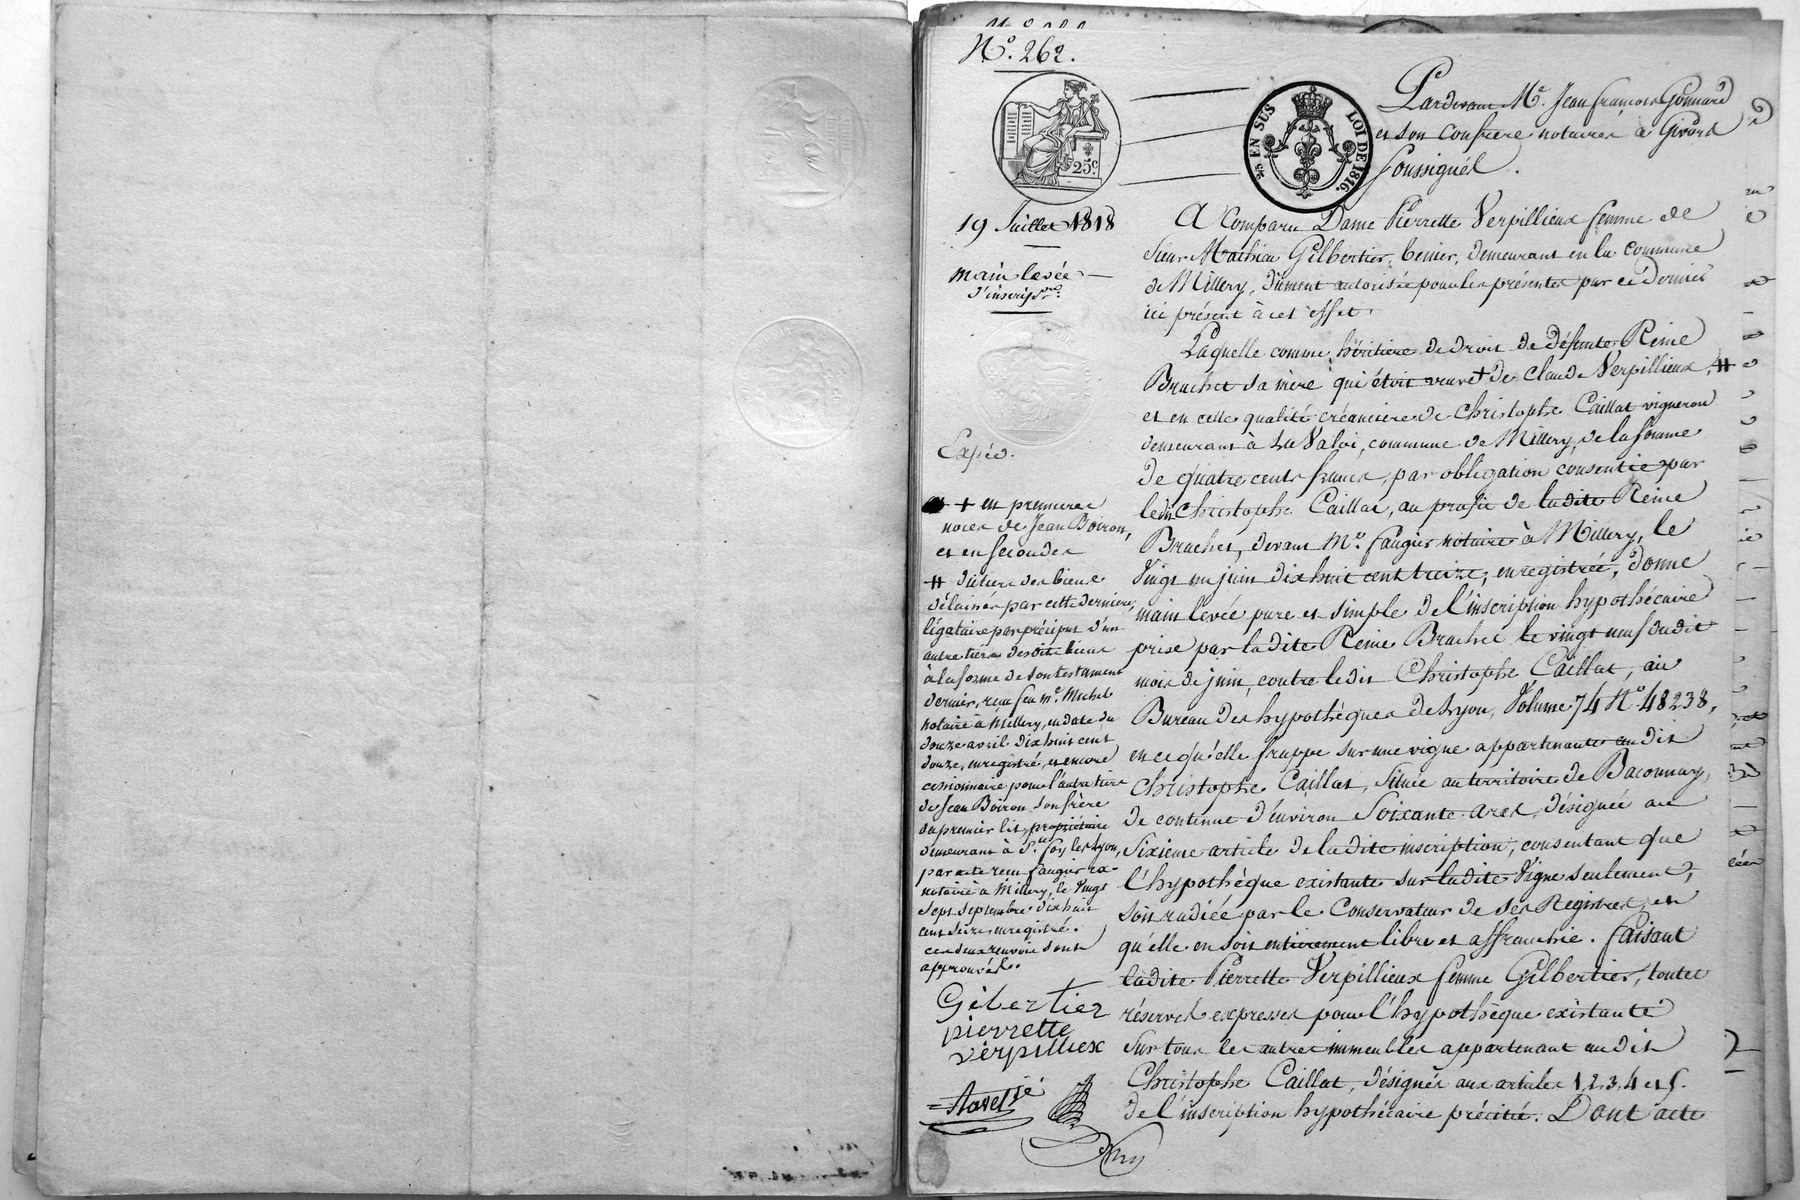 N.° 262.
25c.
EN SUS LOI DE 1816.
Pardevant M.e Jean françois Gonnard
et son confrere notaires à Givors
soussignés.
19 Juillet 1818
main levée
d'inscrip.on
Expée.
A Comparu Dame Pierrette Verpillieux femme de
sieur Mathieu Gilbertier, demeurant en la commune
de Millery, dûment autorisée pour les présentes par ce dernier
ici présent à cet effet.
Laquelle comme héritiere de droit de défunte Reine
Brachet sa mère qui étoit veuve + de Claude Verpillieux, #
et en cette qualité créancière de Christophe Caillat vigneron
demeurant à La Valoi, commune de Millery, de la somme
de quatre cents francs, par obligation consentie par
ledit Christophe Caillat, au profit de ladite Reine
Brachet, devant M.e faugier notaire à Millery, le
Vingt un juin dix huit cent treize, enregistrée, donne
main levée pure et simple de l'inscription hypothécaire
prise par ladite Reine Brachet le vingt neuf dudit
mois de juin, contre ledit Christophe Caillat, au
Bureau des hypothèques de Lyon, Volume 74 N.° 48238,
en ce qu'elle frappe sur une vigne appartenante audit
Christophe Caillat, située au territoire de Baconnay,
de contenue d'environ Soixante ares, désignée au
Sixieme article de ladite inscription, consentant que
l'hypothèque existante sur ladite Vigne seulement,
soit radiée par le Conservateur de ses Registres, et
qu'elle en soit entièrement libre et affranchie. faisant
ladite Pierrette Verpillieux femme Gilbertier, toutes
réserves expresses pour l'hypothèque existante
sur tous les autres immeubles appartenant audit
Christophe Caillat, désignés aux articles 1, 2, 3, 4 et 5.
de l'inscription hypothécaire précitée. Dont acte
+ en premieres
noces de Jean Boiron,
et en secondes
# d'un tiers des biens
délaissés par cette derniere,
légataire par préciput d'un
autre tiers desdits biens
à la forme de son testament
dernier, reçu feu m.e Michel
notaire à Millery, en date du
douze avril dix huit cent
douze, enregistré, et encore
cessionnaire pour l'autre tiers
de Jean Boiron son frère
du premier lit, propriétaire
demeurant à S.te foy les Lyon,
par acte reçu faugier
notaire à Millery, le vingt
sept septembre dix huit
cent seize, enregistré.
ces deux renvois sont
approuvés.
Gibertier
pierrette
verpilliex